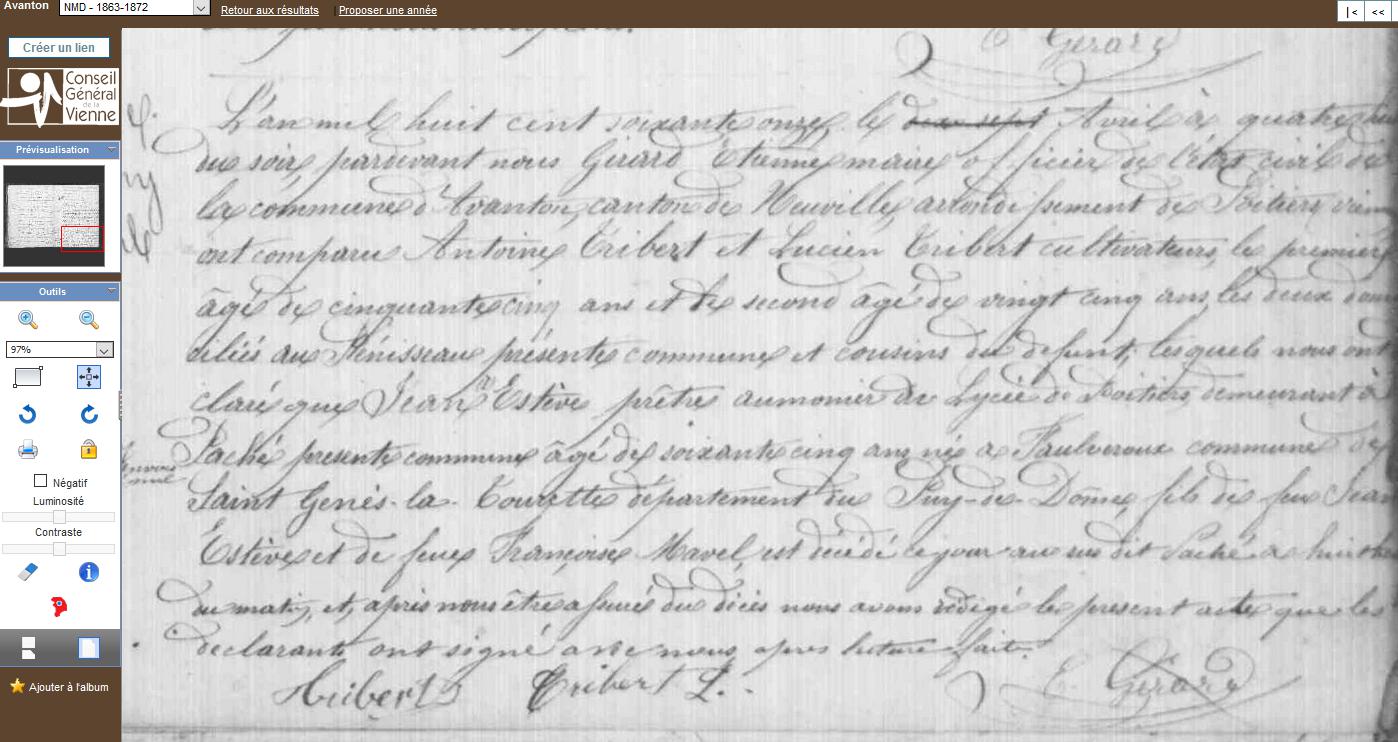 Avanton NMD - 1863-1872 Retour aux résultats | Proposer une année |< <<
Créer un lien
Conseil
Général
de la
Vienne
Prévisualisation
Outils
97%
Négatif
Luminosité
Contraste
Ajouter à l'album
E Girard
L'an mil huit cent soixante onze le dix sept Avril à quatre
du soir, pardevant nous Girard Etienne maire officier de l'état civil de
la commune d'Avanton, canton de Neuville arrondissement de Poitiers vienne
ont comparu Antoine Tribert et Lucien Tribert cultivateurs, le premier
âgé de cinquante cinq ans et le second âgé de vingt cinq ans, les deux domi
ciliés au Pénisseau présente commune et cousins du defunt, lesquels nous ont
claré que Jean Estève prêtre aumonier du Lycée de Poitiers, demeurant à
Paché presente commune âgé de soixante cinq ans né à commune de
Saint Genés-la-Tourette département du Puy-de-Dôme, fils de feu Jean
Estève et de feue Françoise Mavel, est décédé ce jour au sus dit Paché à huit he
du matin, et, après nous être assuré du décès nous avons rédigé le present acte que les
declarants ont signé avec nous, apres lecture faite.
Tribert Tribert L. E Girard